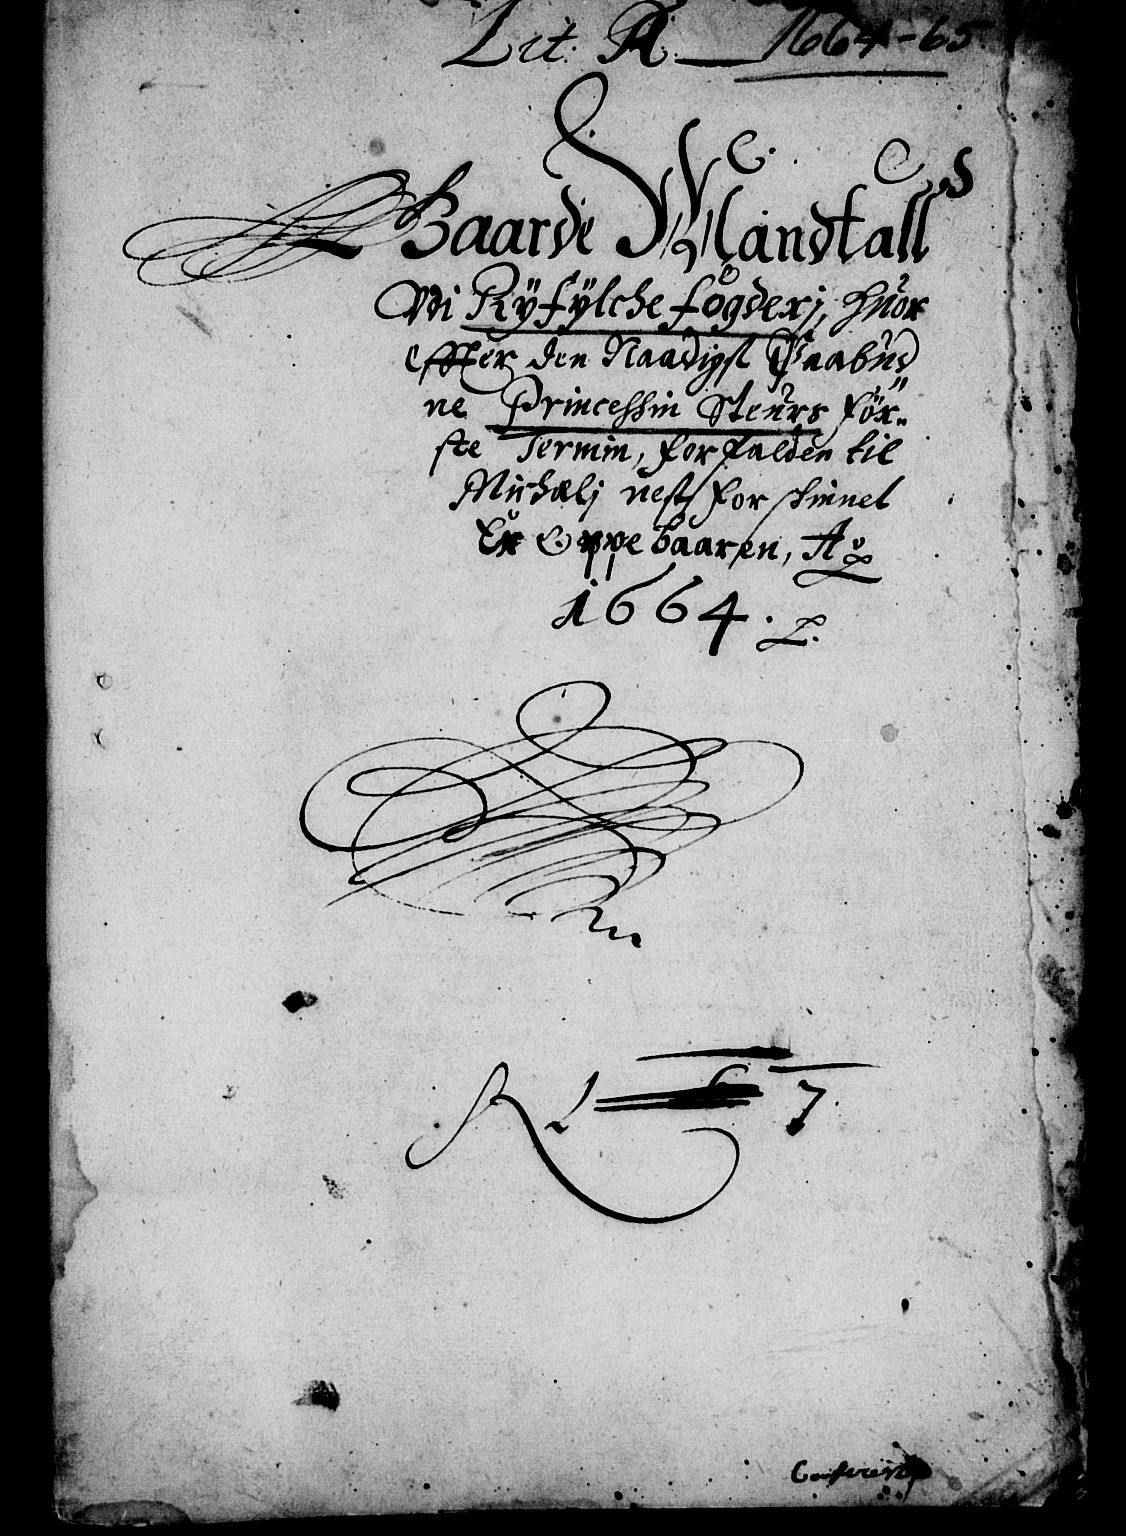 Lit. A. 1664-65
Gaarde Mandtall
Vdi Ryfylche fögderj, huor
effter den Naadigst Paabud
ne Princessin Steurs för-
ste Termin, forfalden til
Michælj nest forschinnet
Er Oppebaaren, Ao
1664.
7